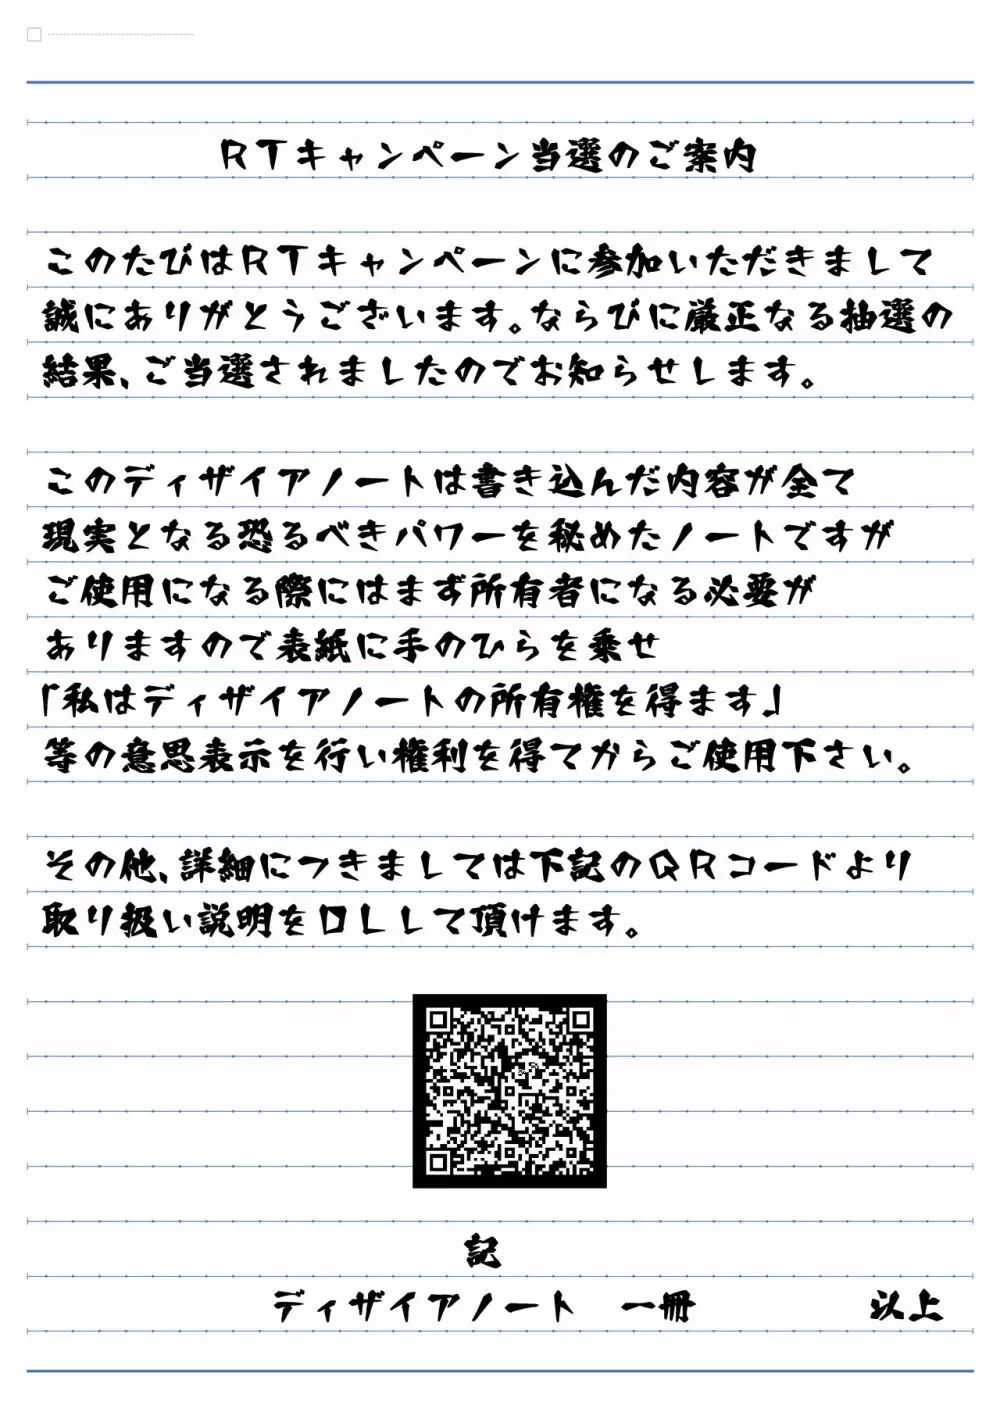 RTキャンペーン当選のご案内
このたびはRTキャンペーンに参加いただきまして
誠にありがとうございます。ならびに厳正なる抽選の
結果、ご当選されましたのでお知らせします。
このディザイアノートは書き込んだ内容が全て
現実となる恐るべきパワーを秘めたノートですが
ご使用になる際にはまず所有者になる必要が
ありますので表紙に手のひらを乗せ
「私はディザイアノートの所有権を得ます」
等の意思表示を行い権利を得てからご使用下さい。
その他、詳細につきましては下記のQRコードより
取り扱い説明をDLして頂けます。
記
ディザイアノート 一冊 以上